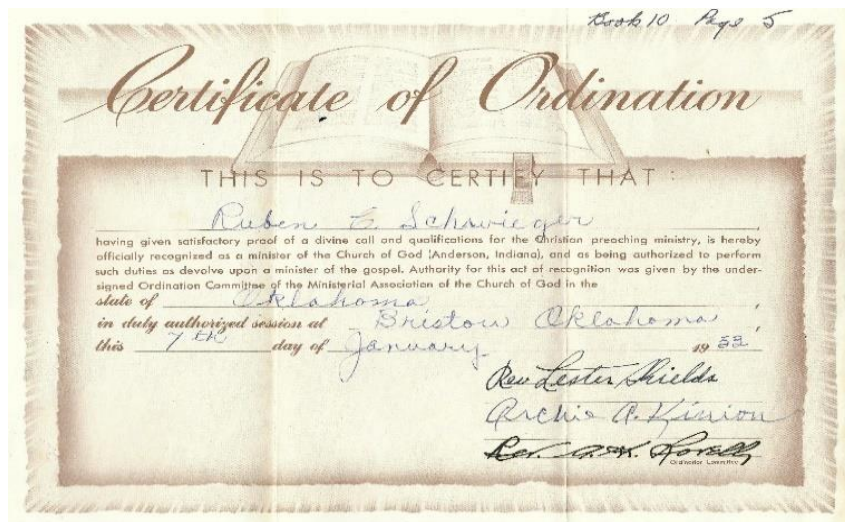 Book 10 Page 5
Certificate of Ordination
THIS IS TO CERTIFY THAT :
Ruben E Schwieger
having given satisfactory proof of a divine call and qualifications for the Christian preaching ministry, is hereby
officially recognized as a minister of the Church of God (Anderson, Indiana), and as being authorized to perform
such duties as devolve upon a minister of the gospel. Authority for this act of recognition was given by the under-
signed Ordination Committee of the Ministerial Association of the Church of God in the
state of Oklahoma,
in duly authorized session at Bristow Oklahoma,
this 7th day of January 19
Rev Lester Shields
Archie A. Kinion
Rev.
Ordination Committee